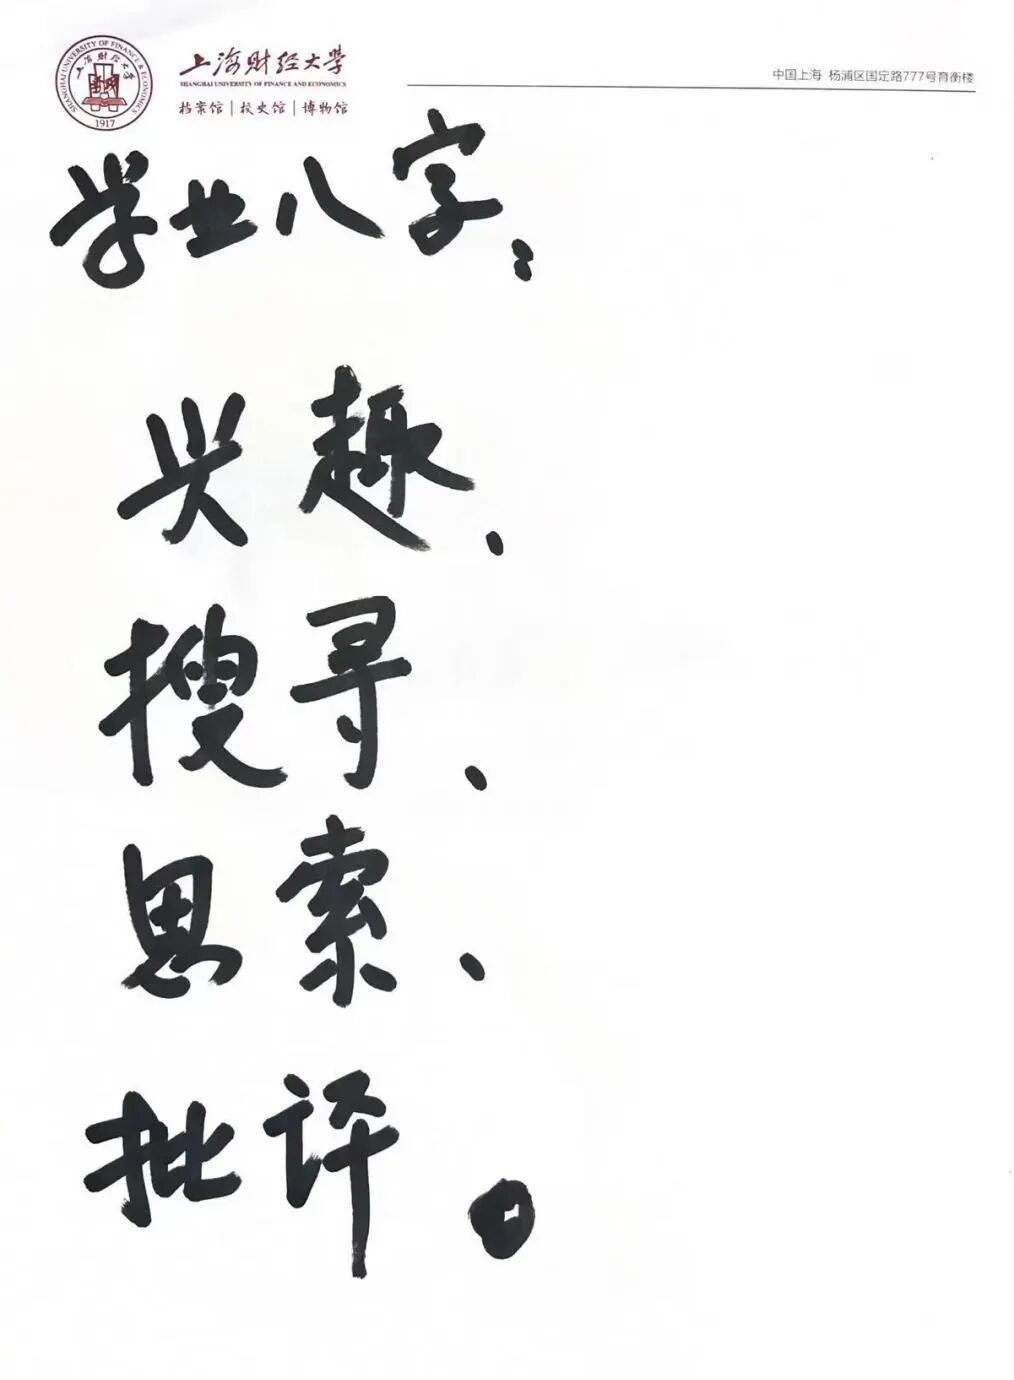 SHANGHAI UNIVERSITY OF FINANCE & ECONOMICS
上海财经大学
1917
上海财经大学
SHANGHAI UNIVERSITY OF FINANCE AND ECONOMICS
档案馆｜校史馆｜博物馆
中国上海 杨浦区国定路777号育衡楼
学业八字：
兴趣、
搜寻、
思索、
批评。